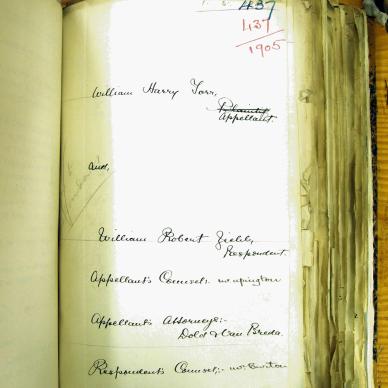 437
437
1905
William Harry Torr,
Plaintiff
Appellant.
And,
William Robert
Respondent.
Appellant's Counsel:- Mr Upington
Appellant's Attorneys:-
Dold & Van Breda.
Respondent's Counsel:- Mr